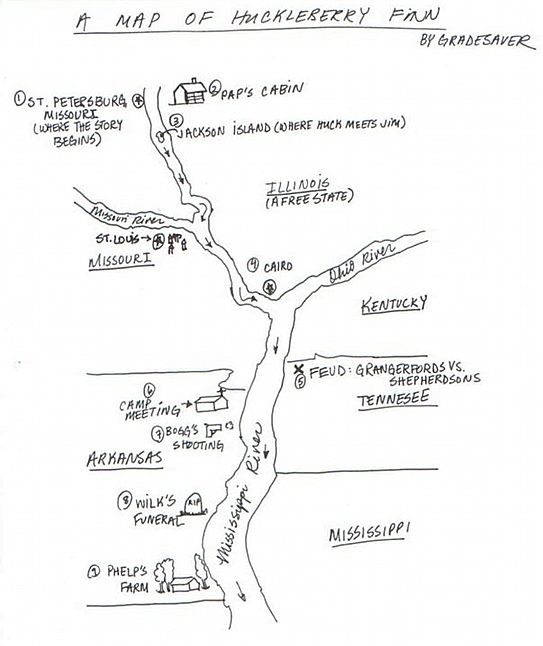 A MAP OF HUCKLEBERRY FINN
BY GRADESAVER
① ST. PETERSBURG,
MISSOURI
(WHERE THE STORY
BEGINS)
② PAP'S CABIN
③
JACKSON ISLAND (WHERE HUCK MEETS JIM)
ILLINOIS
(A FREE STATE)
Missouri River
ST. LOUIS
MISSOURI
④ CAIRO
Ohio River
KENTUCKY
⑤ FEUD: GRANGERFORDS VS.
SHEPHERDSONS
TENNESEE
⑥
CAMP
MEETING
⑦ BOGG'S
SHOOTING
ARKANSAS
Mississippi River
⑧ WILK'S
FUNERAL
RIP
MISSISSIPPI
⑨ PHELP'S
FARM